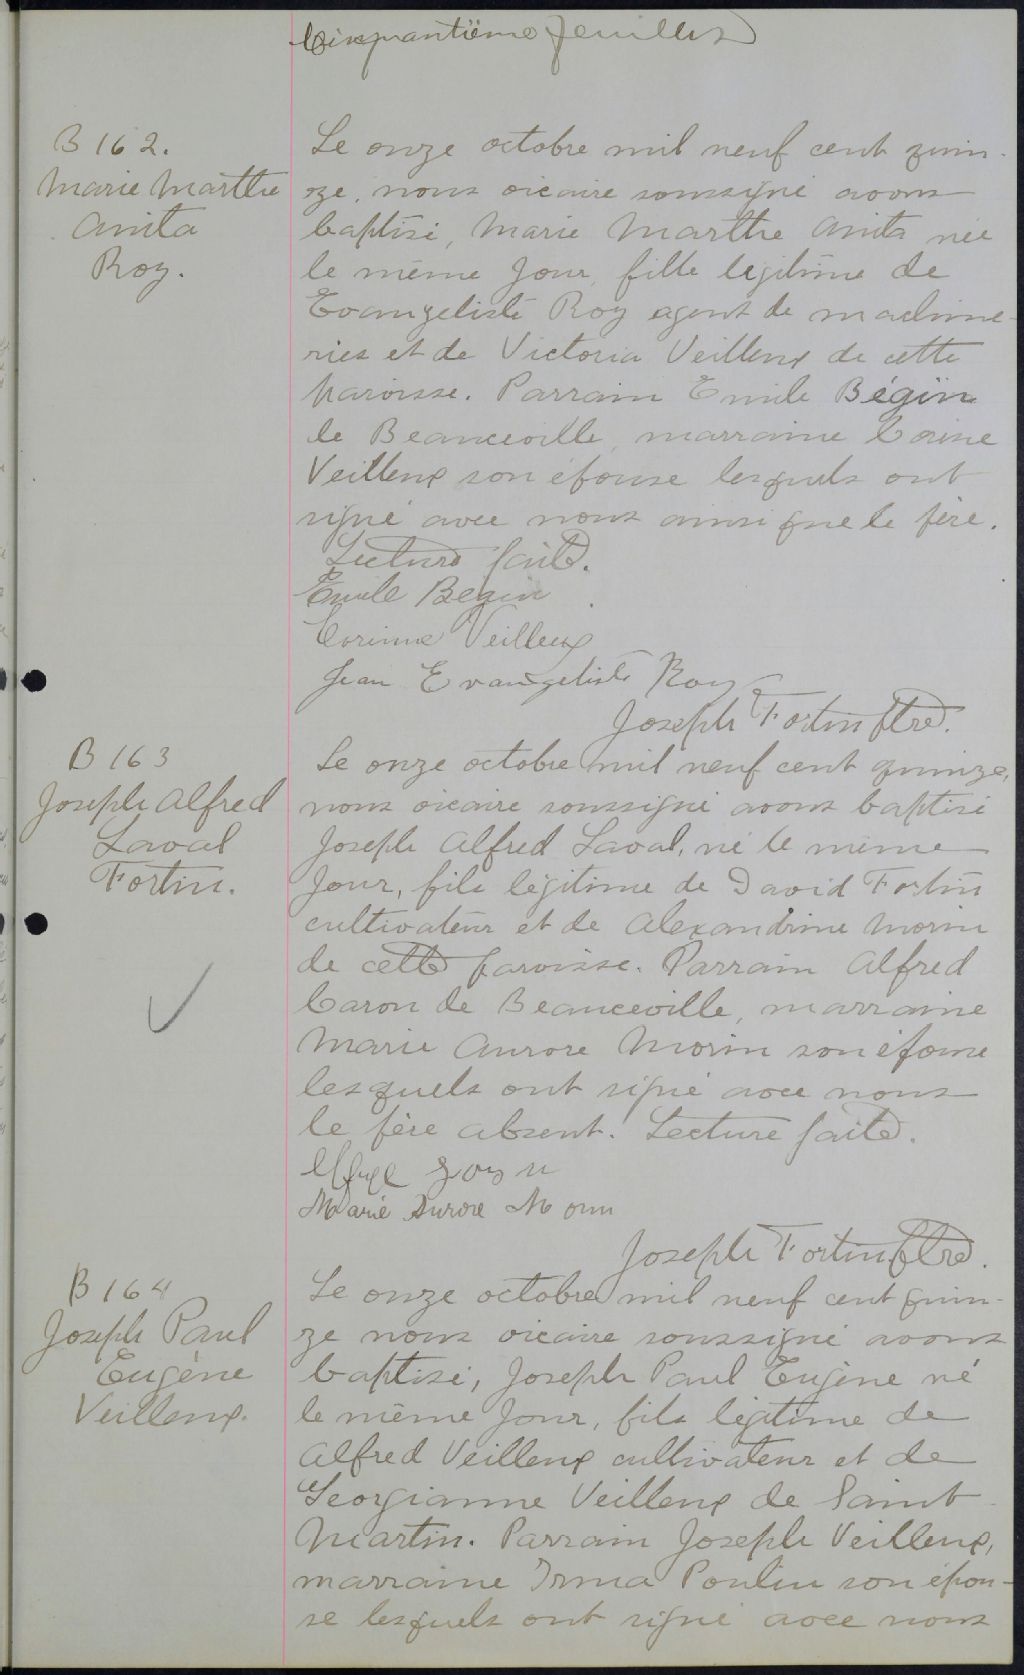 Cinquantième feuillet
B 162.
Marie Marthe
Anita
Roy.
Le onze octobre mil neuf cent quin-
ze, nous vicaire soussigné avons
baptisé, Marie Marthe Anita née
le même jour, fille légitime de
Evangeliste Roy agent de machine-
ries et de Victoria Veilleux de cette
paroisse. Parrain Emile Bégin
de Beauceville, marraine Corine
Veilleux son épouse lesquels ont
signé avec nous ainsi que le père.
Lecture faite.
Emile Begin
Corinne Veilleux
Jean Evangeliste Roy
Joseph Fortin ptre.
B 163
Joseph Alfred
Laval
Fortin.
Le onze octobre mil neuf cent quinze,
nous vicaire soussigné avons baptisé
Joseph Alfred Laval, né le même
jour, fils légitime de David Fortin
cultivateur et de Alexandrine Morin
de cette paroisse. Parrain Alfred
Caron de Beauceville, marraine
Marie Aurore Morin son épouse
lesquels ont signé avec nous
le père absent. Lecture faite.
Marie Aurore Morin
Joseph Fortin ptre.
B 164
Joseph Paul
Eugène
Veilleux.
Le onze octobre mil neuf cent quin-
ze nous vicaire soussigné avons
baptisé, Joseph Paul Eugène né
le même jour, fils légitime de
Alfred Veilleux cultivateur et de
Georgianne Veilleux de Saint
Martin. Parrain Joseph Veilleux,
marraine Irma Poulin son épou-
se lesquels ont signé avec nous